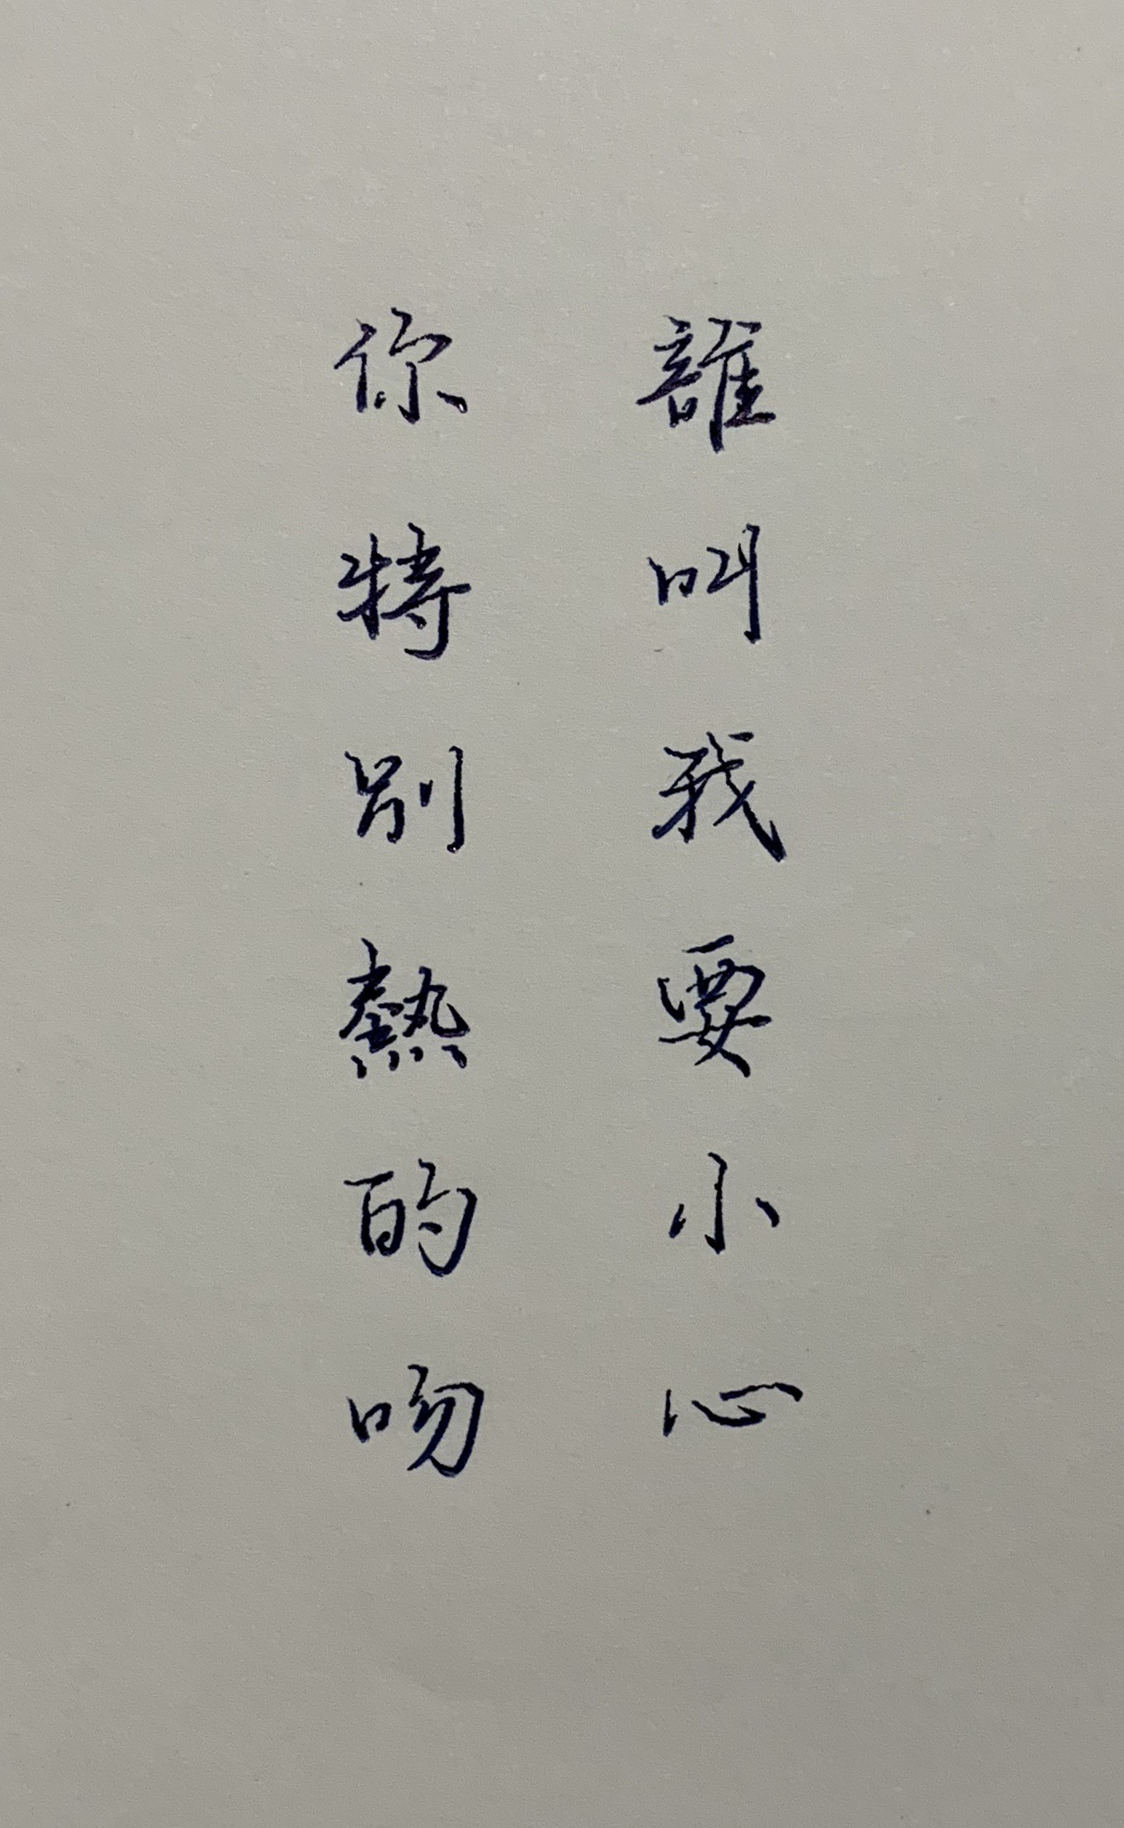 誰叫我要小心
你特別熱的吻